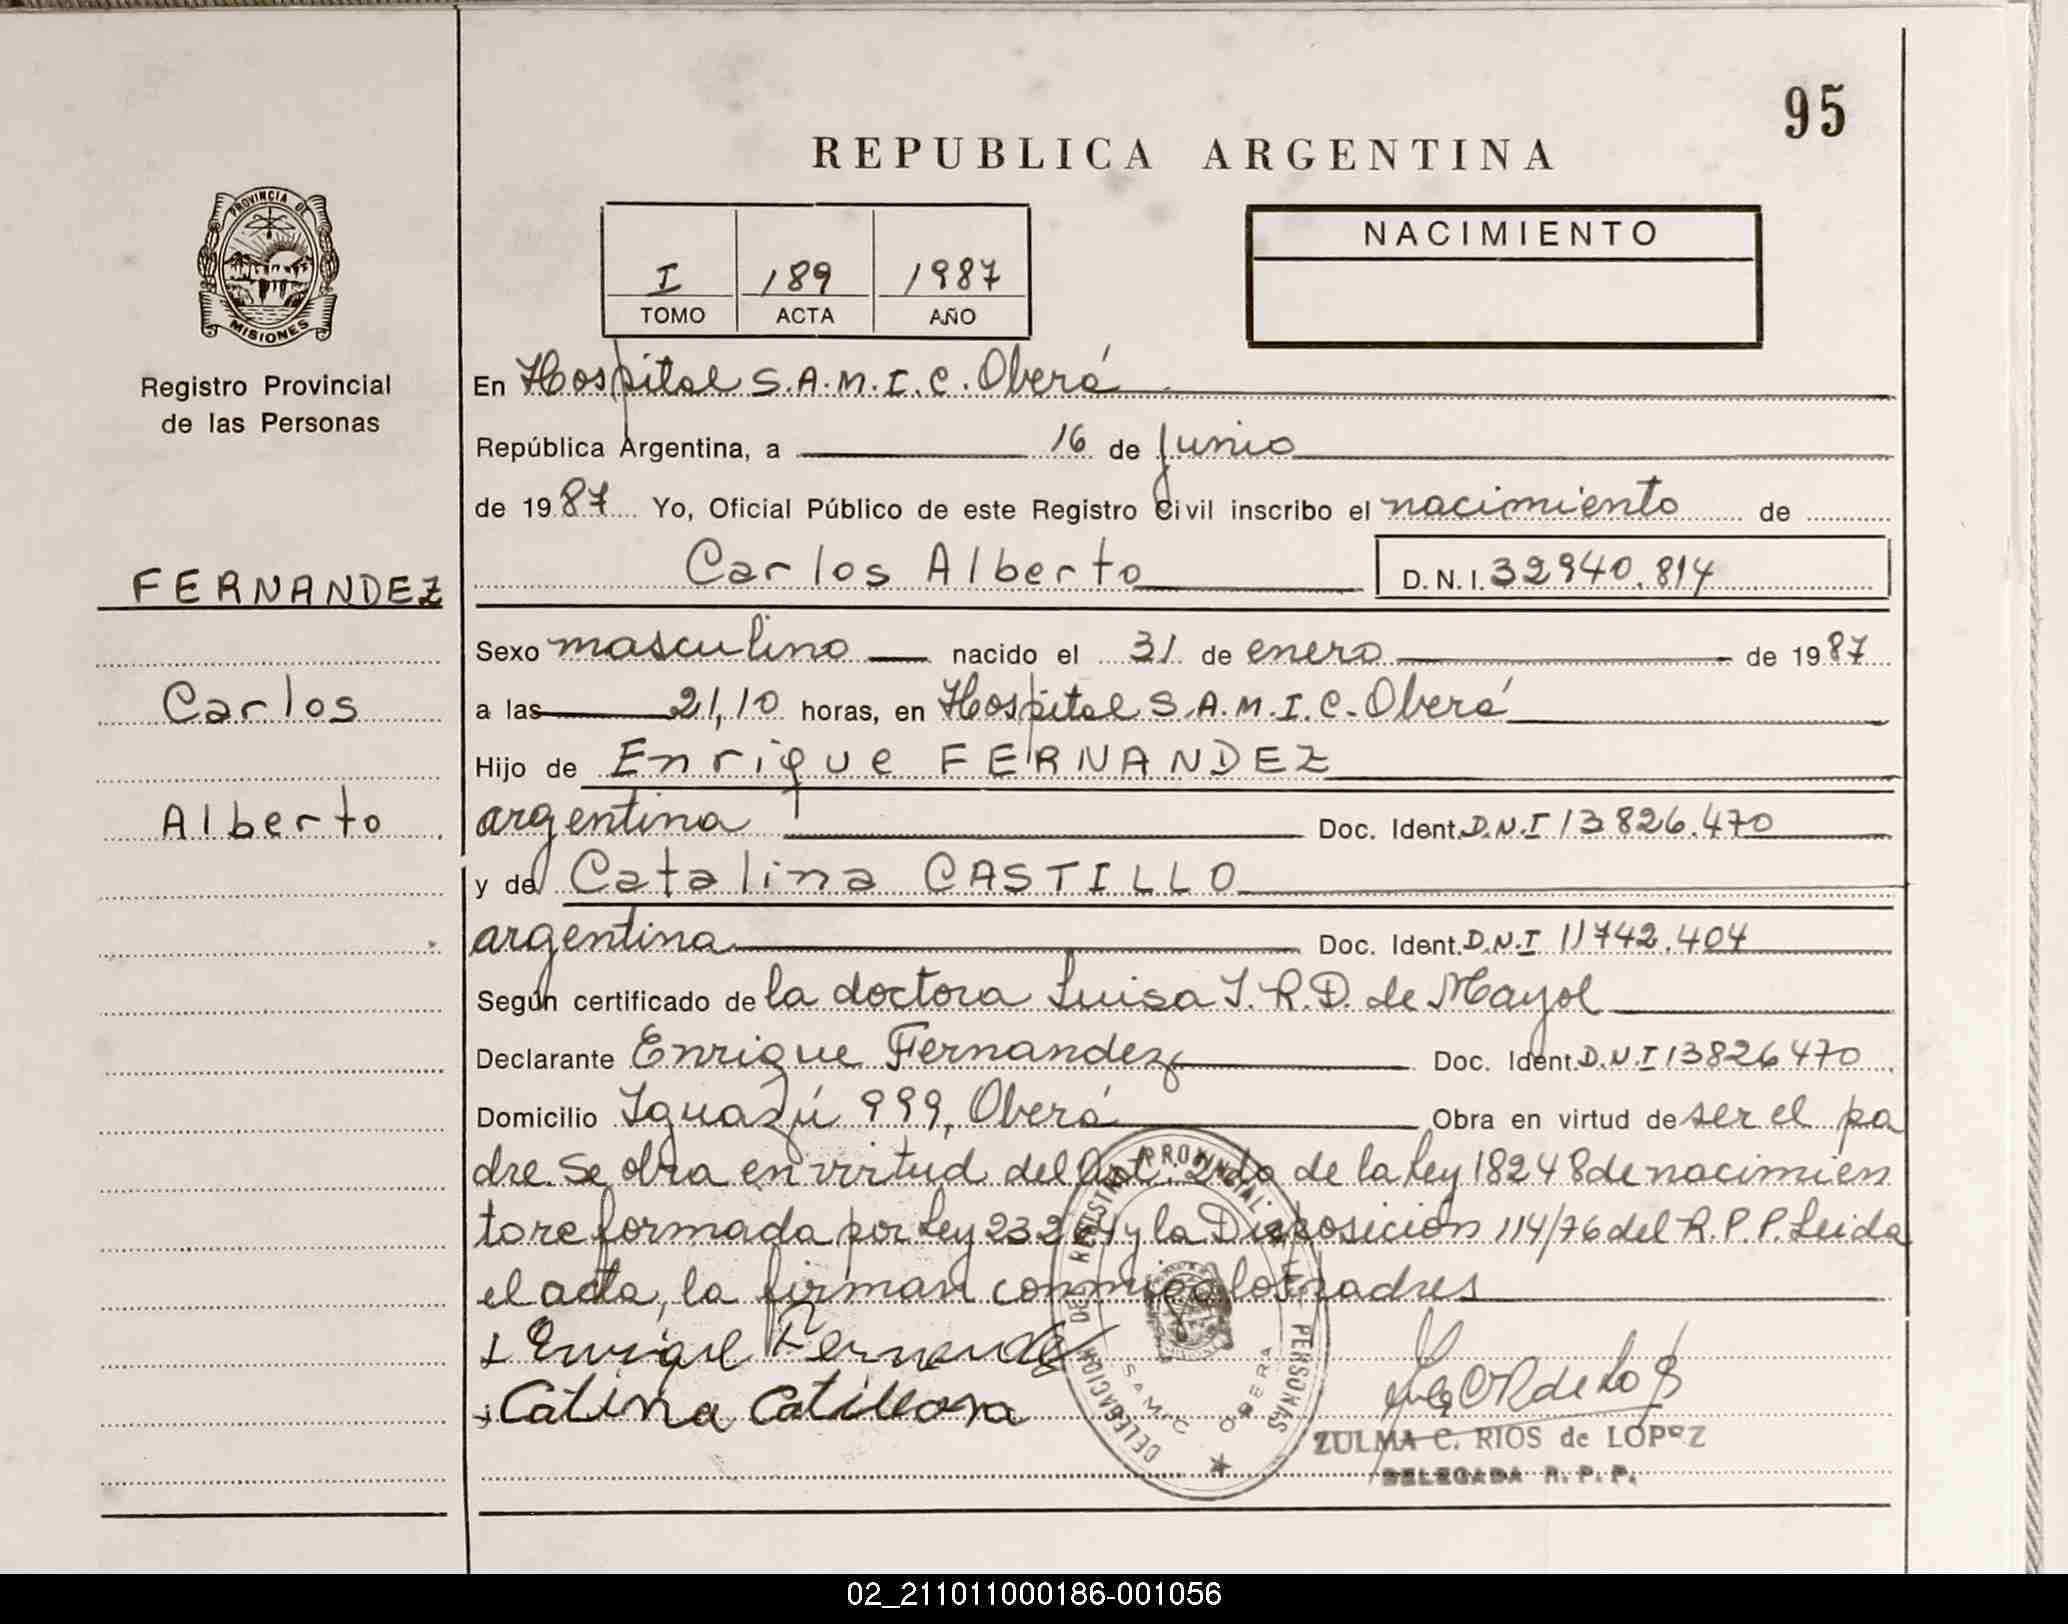 95
REPUBLICA ARGENTINA
PROVINCIA DE
MISIONES
Registro Provincial
de las Personas
I 189 1987
TOMO ACTA AÑO
NACIMIENTO
En Hospital S.A.M.I.C. Oberá
República Argentina, a 16 de junio
de 1987 Yo, Oficial Público de este Registro Civil inscribo el nacimiento de
Carlos Alberto D.N.I. 32940.814
FERNANDEZ
Carlos
Alberto
Sexo masculino nacido el 31 de enero de 1987
a las 21,10 horas, en Hospital S.A.M.I.C. Oberá
Hijo de Enrique FERNANDEZ
argentina Doc. Ident. D.N.I 13826.470
y de Catalina CASTILLO
argentina Doc. Ident. D.N.I 11742.404
Según certificado de la doctora Luisa I.R.D. de Mayol
Declarante Enrique Fernandez Doc. Ident. D.N.I 13826470
Domicilio Iguazú 999, Oberá Obra en virtud de ser el pa
dre. Se obra en virtud del Art. 2do de la Ley 18248 de nacimien
to reformada por Ley 23264 y la Disposición 114/76 del R.P.P. Leida
el acta, la firman conmigo los padres
Enrique Fernandez
Catina
DELEGACION DE REGISTRO PROVINCIAL DE LAS PERSONAS
SAMIC OBERA
ZULMA C. RIOS de LOPEZ
DELEGADA R.P.P.
02_211011000186-001056